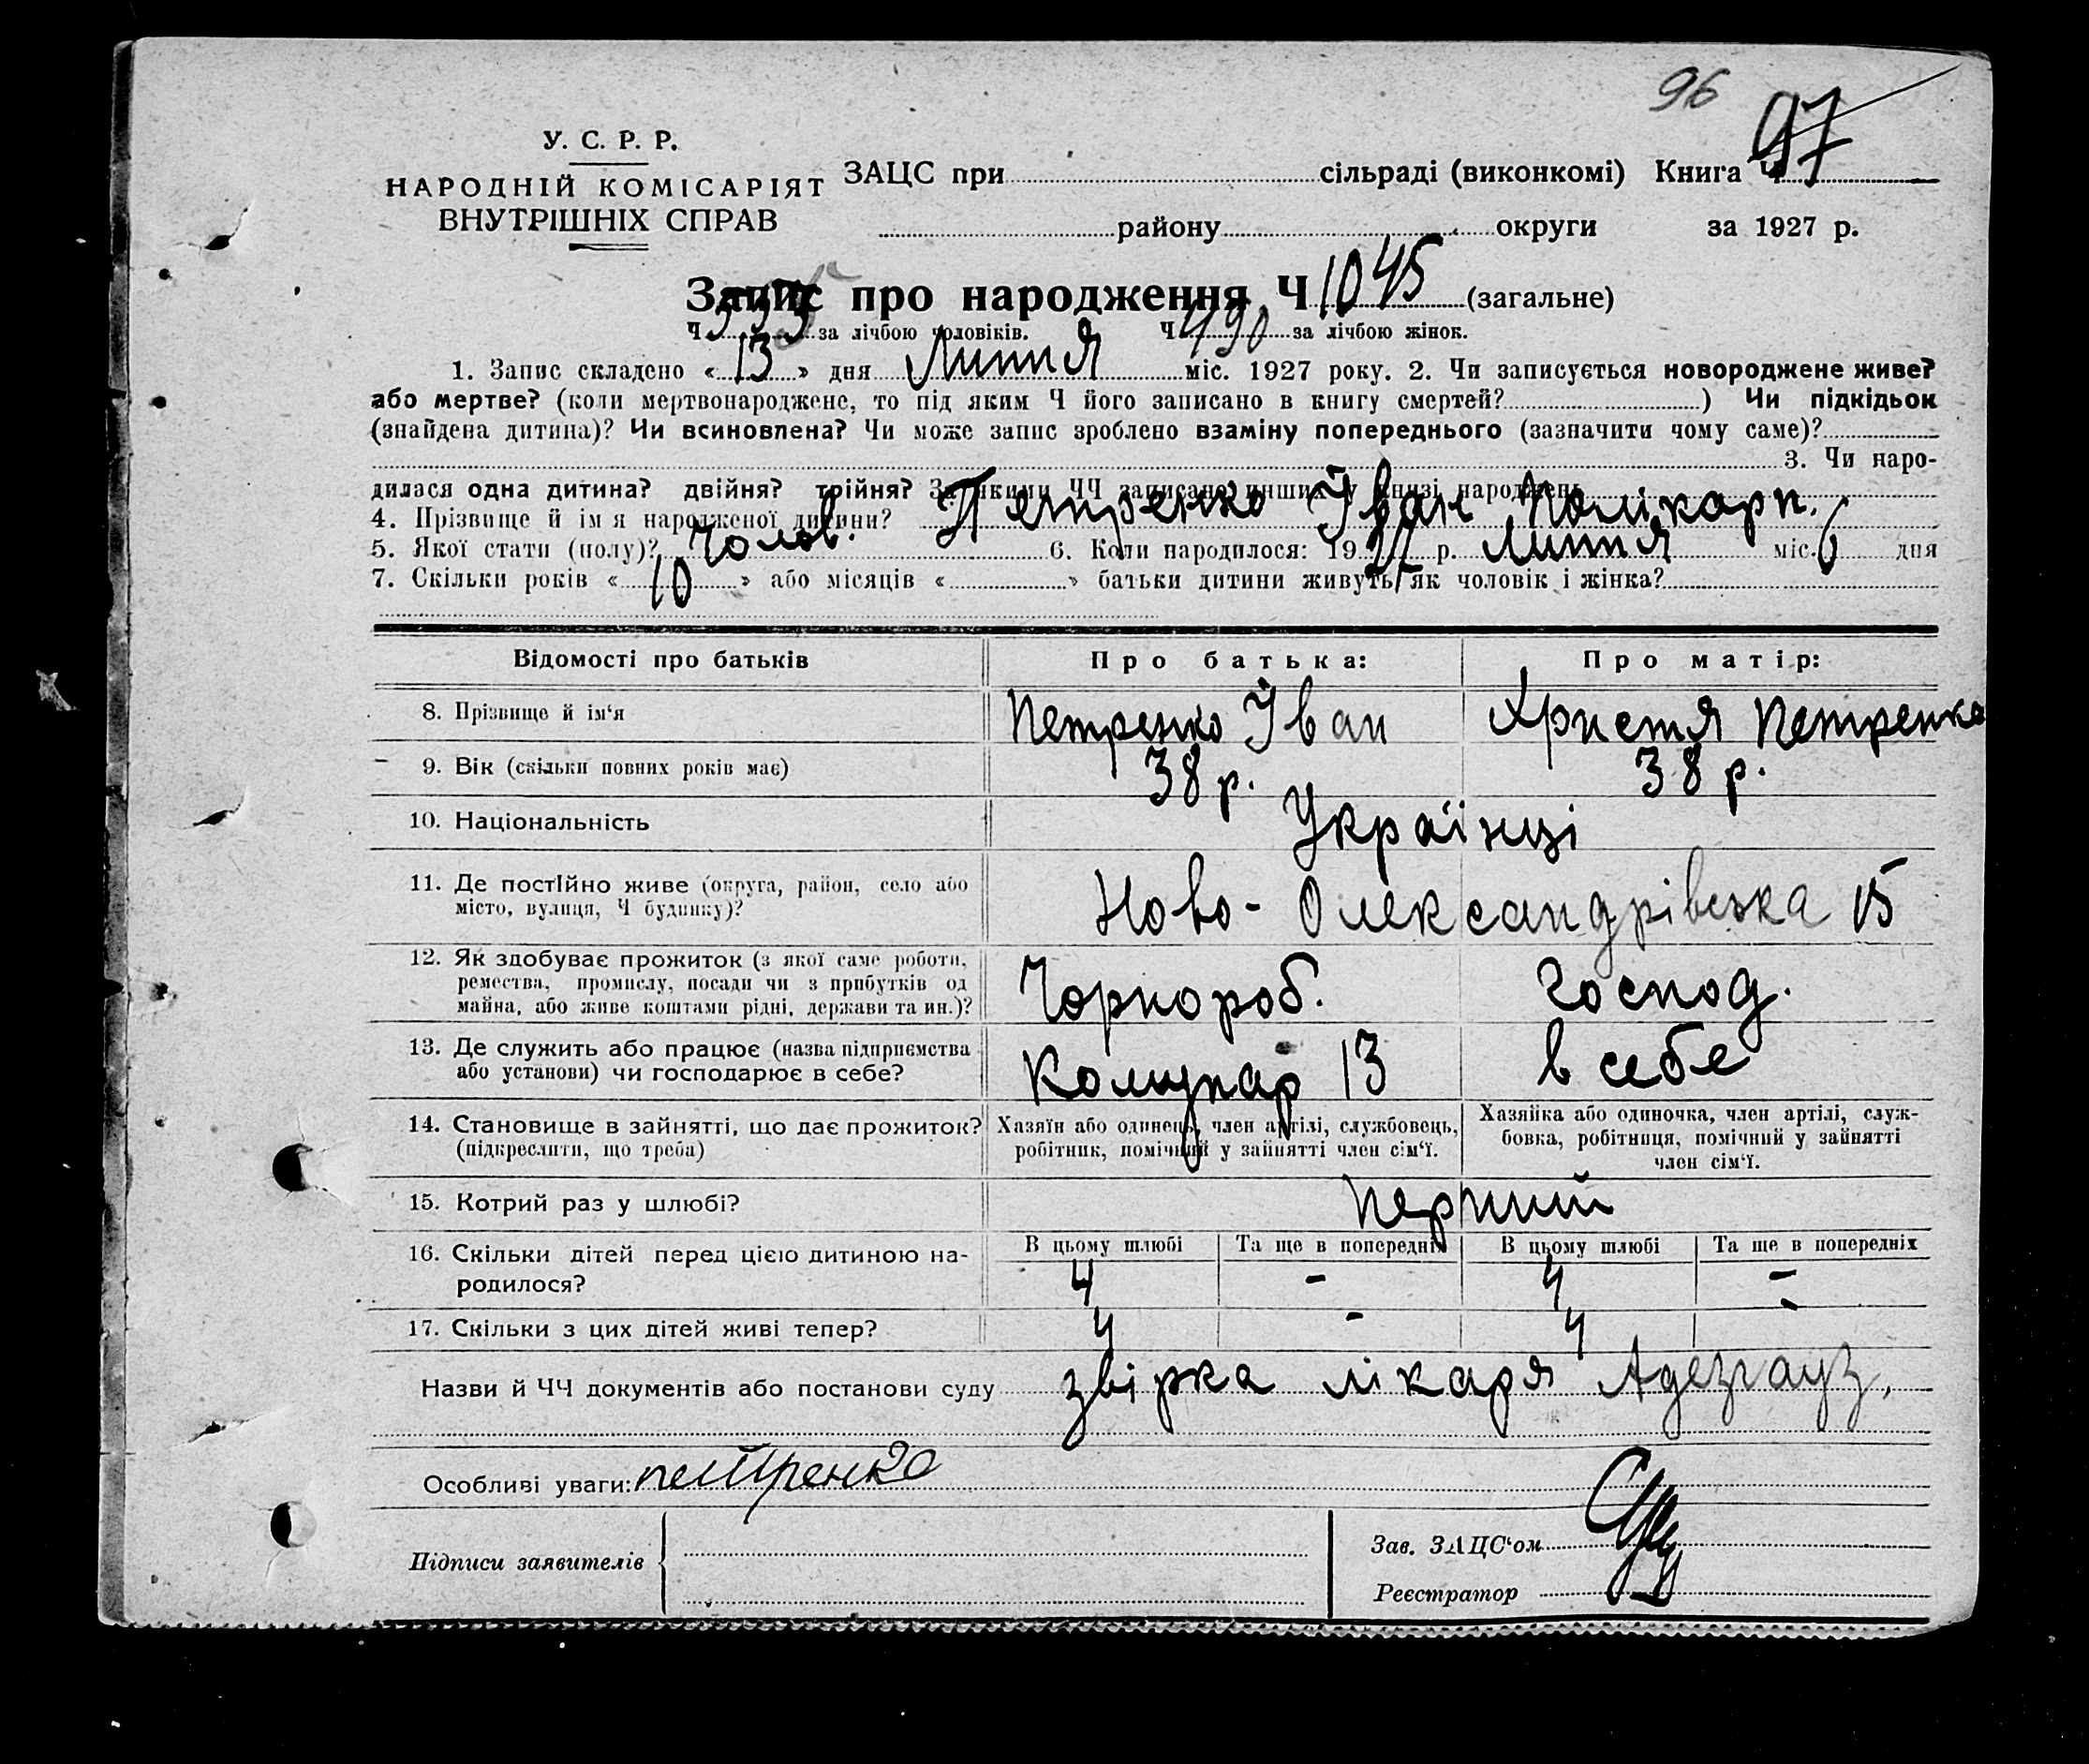 96
97
У. С. Р. Р.
НАРОДНІЙ КОМІСАРІЯТ
ВНУТРІШНІХ СПРАВ
ЗАЦС при сільраді (виконкомі) Книга Ч
району округи за 1927 р.
Запис про народження Ч 1045 (загальне)
Ч 555 за лічбою чоловіків. Ч 490 за лічбою жінок.
1. Запис складено « 13 » дня Липня міс. 1927 року. 2. Чи записується новороджене живе?
або мертве? (коли мертвонароджене, то під яким Ч його записано в книгу смертей? ) Чи підкідьок
(знайдена дитина)? Чи всиновлена? Чи може запис зроблено взаміну попереднього (зазначити чому саме)?
3. Чи наро-
дилася одна дитина? двійня? трійня? За якими ЧЧ записано инших у книзі народжень
4. Прізвище й ім я народженої дитини? Петренко Іван Полікарп.
5. Якої стати (полу)? Чолов. 6. Коли народилося: 1927 р. Липня міс. 6 дня
7. Скільки років « 10 » або місяців « » батьки дитини живуть як чоловік і жінка?
Відомості про батьків Про батька: Про матір:
8. Прізвище й ім‘я Петренко Іван Христя Петренко
9. Вік (скільки повних років має) 38 р. 38 р.
10. Національність Українці
11. Де постійно живе (округа, район, село або
місто, вулиця, Ч будинку)? Ново-Олександрівська 15
12. Як здобуває прожиток (з якої саме роботи,
ремества, промислу, посади чи з прибутків од
майна, або живе коштами рідні, держави та ин.)? Чорнороб. Господ.
13. Де служить або працює (назва підприємства
або установи) чи господарює в себе? 13 в себе
14. Становище в зайнятті, що дає прожиток?
(підкреслити, що треба)
Хазяїн або одинець, член артілі, службовець,
робітник, помічний у зайнятті член сім‘ї.
Хазяйка або одиночка, член артілі, служ-
бовка, робітниця, помічний у зайнятті
член сім‘ї.
15. Котрий раз у шлюбі? перший
16. Скільки дітей перед цією дитиною на-
родилося?
В цьому шлюбі Та ще в попередніх В цьому шлюбі Та ще в попередніх
4 - 4 -
17. Скільки з цих дітей живі тепер? 4 - 4 -
Назви й ЧЧ документів або постанови суду звірка лікаря
Особливі уваги: петренко
Підписи заявителів
Зав. ЗАЦС‘ом
Реєстратор